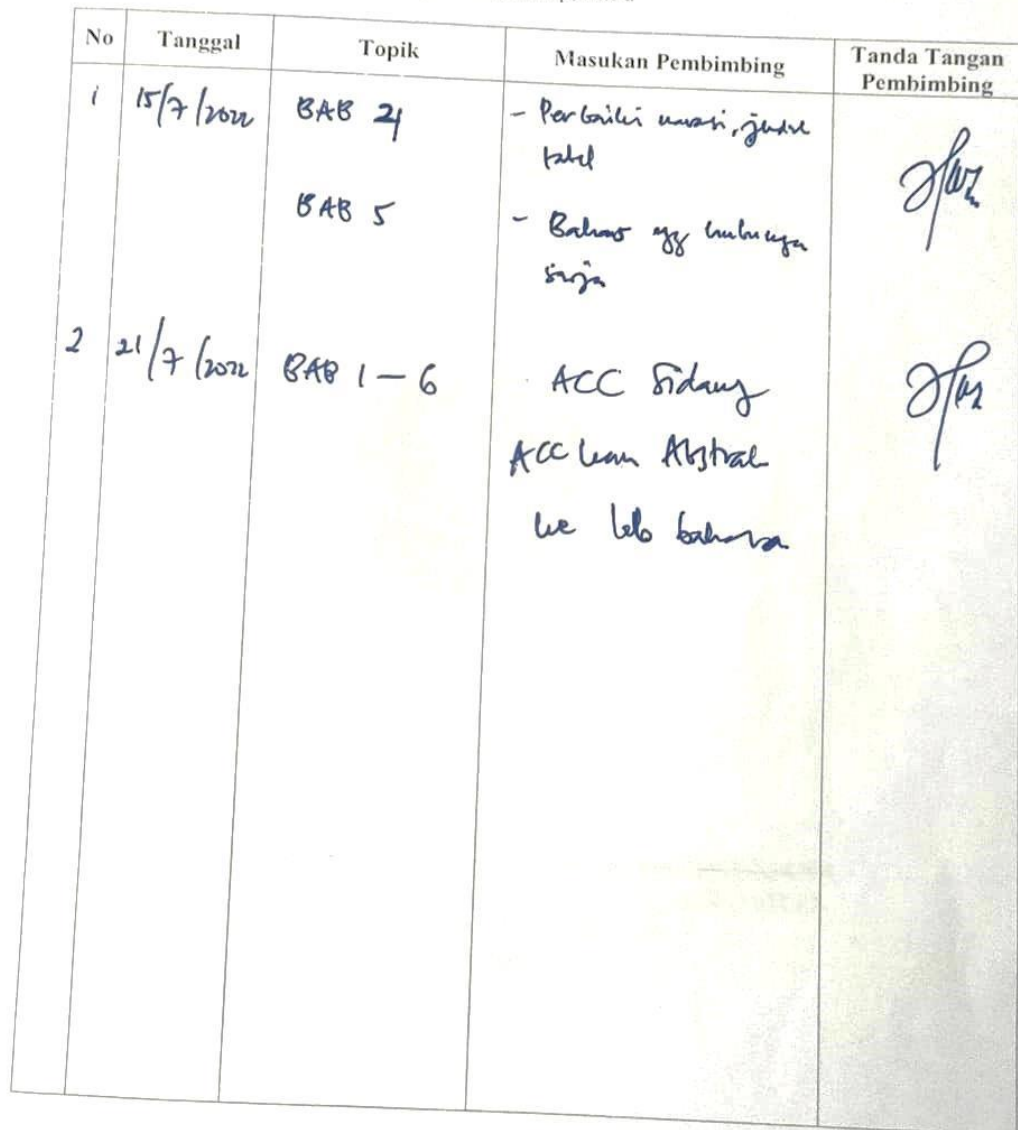 No Tanggal Topik Masukan Pembimbing Tanda Tangan Pembimbing
1 15/7/2022 BAB 4 - Perbaiki narasi, judul
tabel
BAB 5 - Bahas yg hubungan
saja
2 21/7/2022 BAB 1 - 6 ACC Sidang
ACC kan Abstrak
ke lab bahasa